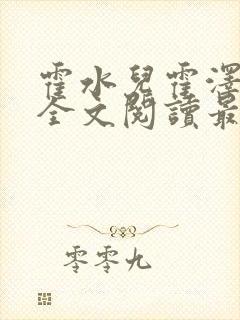 霍水兒霍澤
全文閱讀最
零零九